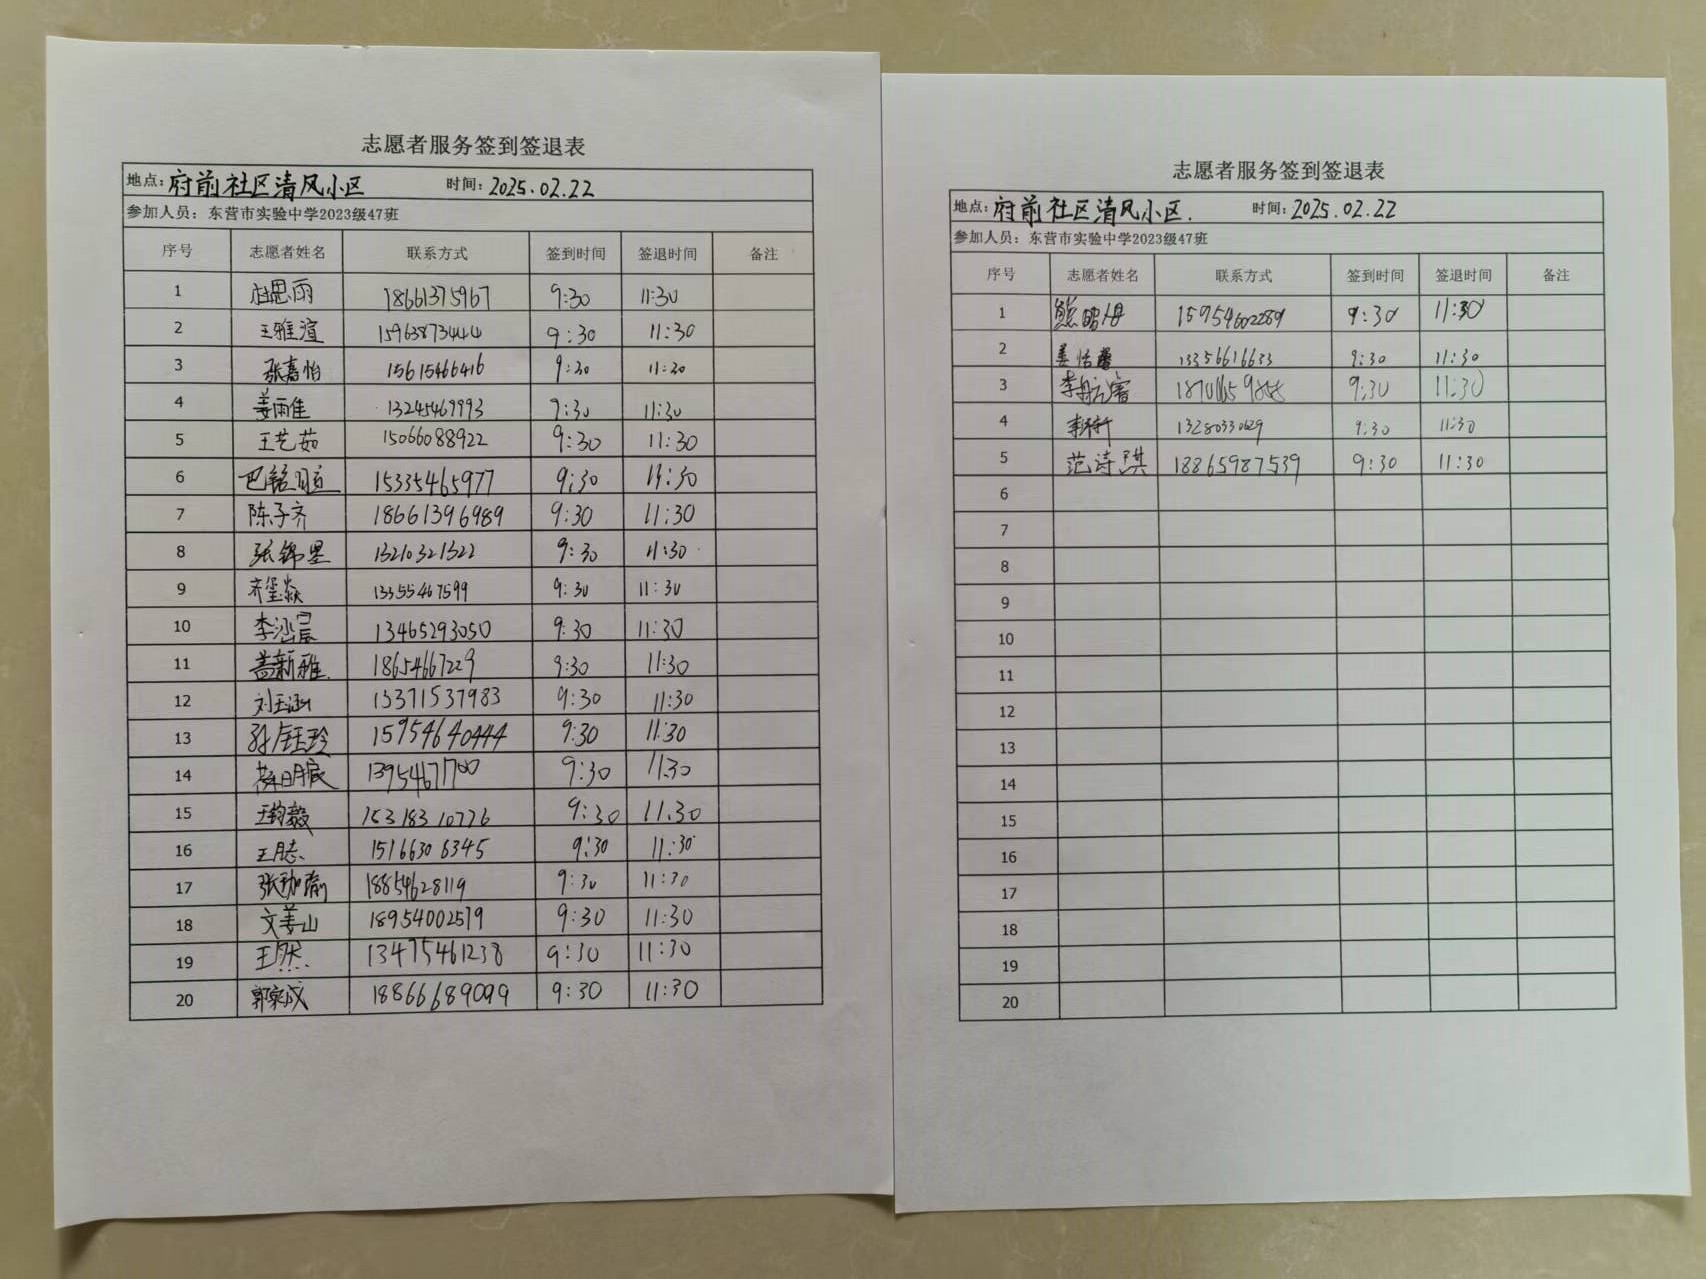 志愿者服务签到签退表
地点：府前社区清风小区 时间：2025.02.22
参加人员：东营市实验中学2023级47班
序号 志愿者姓名 联系方式 签到时间 签退时间 备注
1 杜思雨 18661375967 9:30 11:30
2 王雅渲 15963873444 9:30 11:30
3 张嘉怡 15615466416 9:30 11:30
4 姜雨佳 13245469993 9:30 11:30
5 王艺茹 15066088922 9:30 11:30
6 15335465977 9:30 11:30
7 陈子齐 18661396989 9:30 11:30
8 张锦星 13210321322 9:30 11:30
9 13355467599 9:30 11:30
10 13465293050 9:30 11:30
11 盖新雅 18654667229 9:30 11:30
12 刘玉涵 15371537983 9:30 11:30
13 15954640444 9:30 11:30
14 13954671700 9:30 11:30
15 15318310776 9:30 11:30
16 15166306345 9:30 11:30
17 张珈瑜 18854628119 9:30 11:30
18 文姜山 18954002579 9:30 11:30
19 13475461238 9:30 11:30
20 18866689099 9:30 11:30
志愿者服务签到签退表
地点：府前社区清风小区. 时间：2025.02.22
参加人员：东营市实验中学2023级47班
序号 志愿者姓名 联系方式 签到时间 签退时间 备注
1 15954602289 9:30 11:30
2 姜怡馨 13356616633 9:30 11:30
3 9:30 11:30
4 9:30 11:30
5 范诗琪 18865987539 9:30 11:30
6
7
8
9
10
11
12
13
14
15
16
17
18
19
20